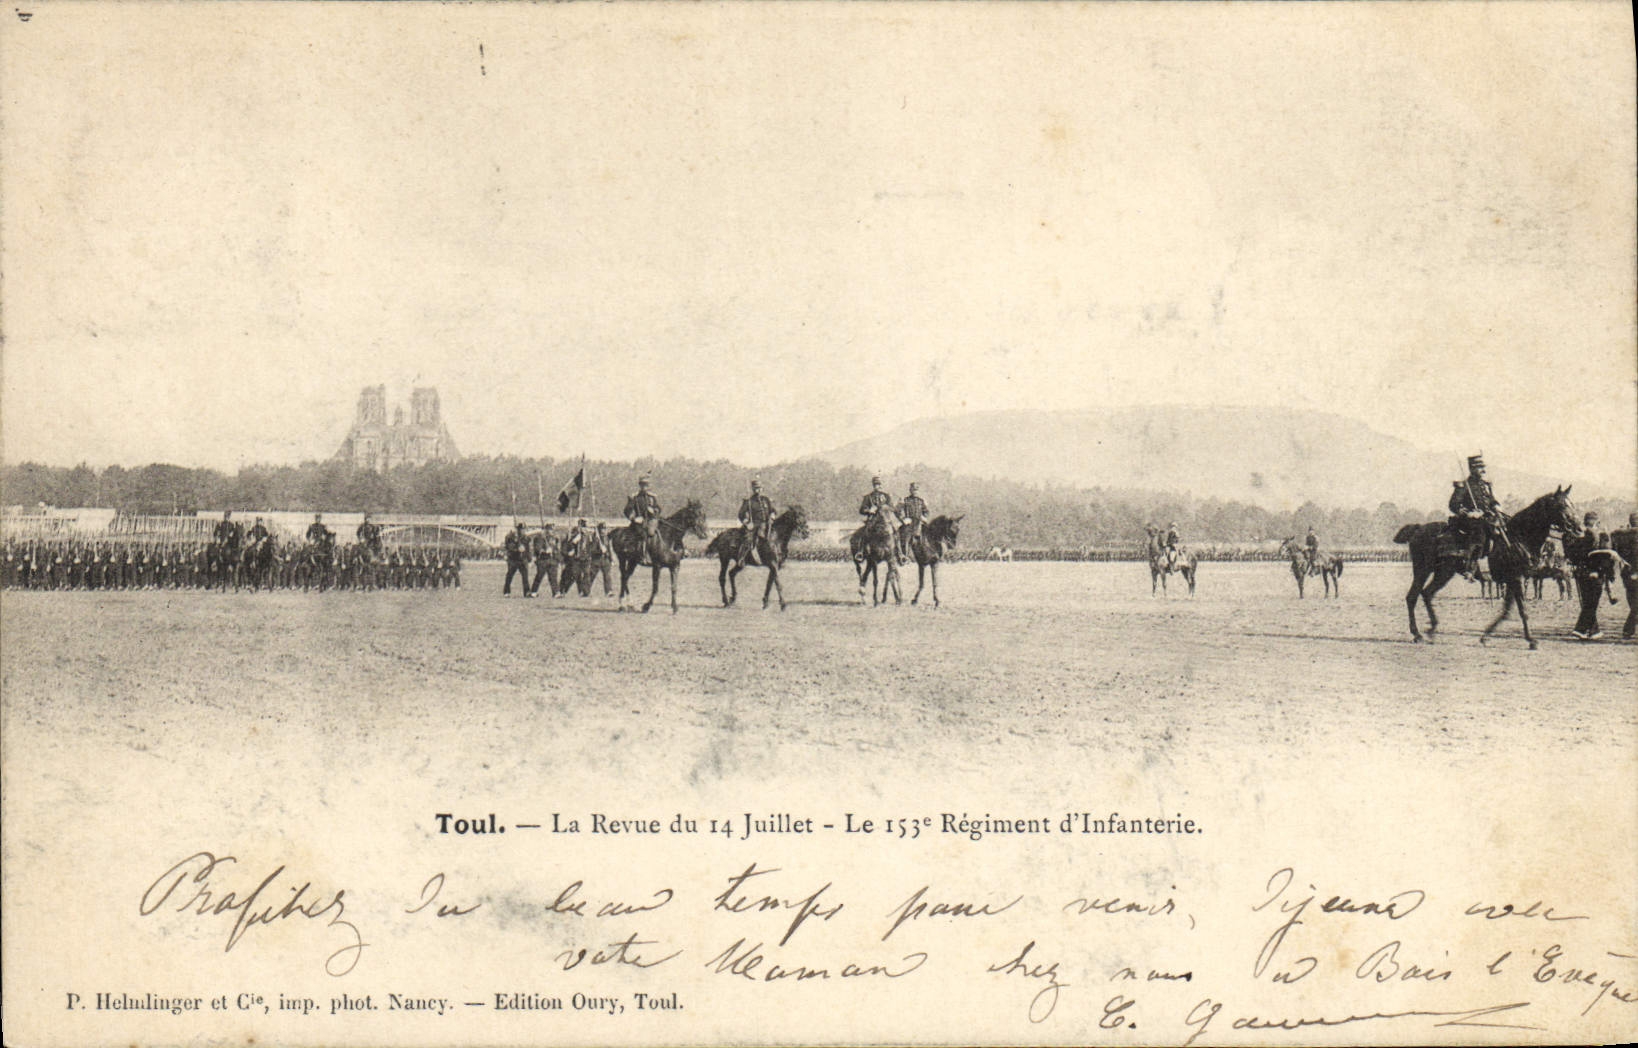 Toul. — La Revue du 14 Juillet - Le 153e Régiment d'Infanterie.
Profitez du beau temps pour venir, dejeuner avec
votre Maman chez nous à Bois l'Evêque
E.
P. Helmlinger et Cie, imp. phot. Nancy. — Edition Oury, Toul.